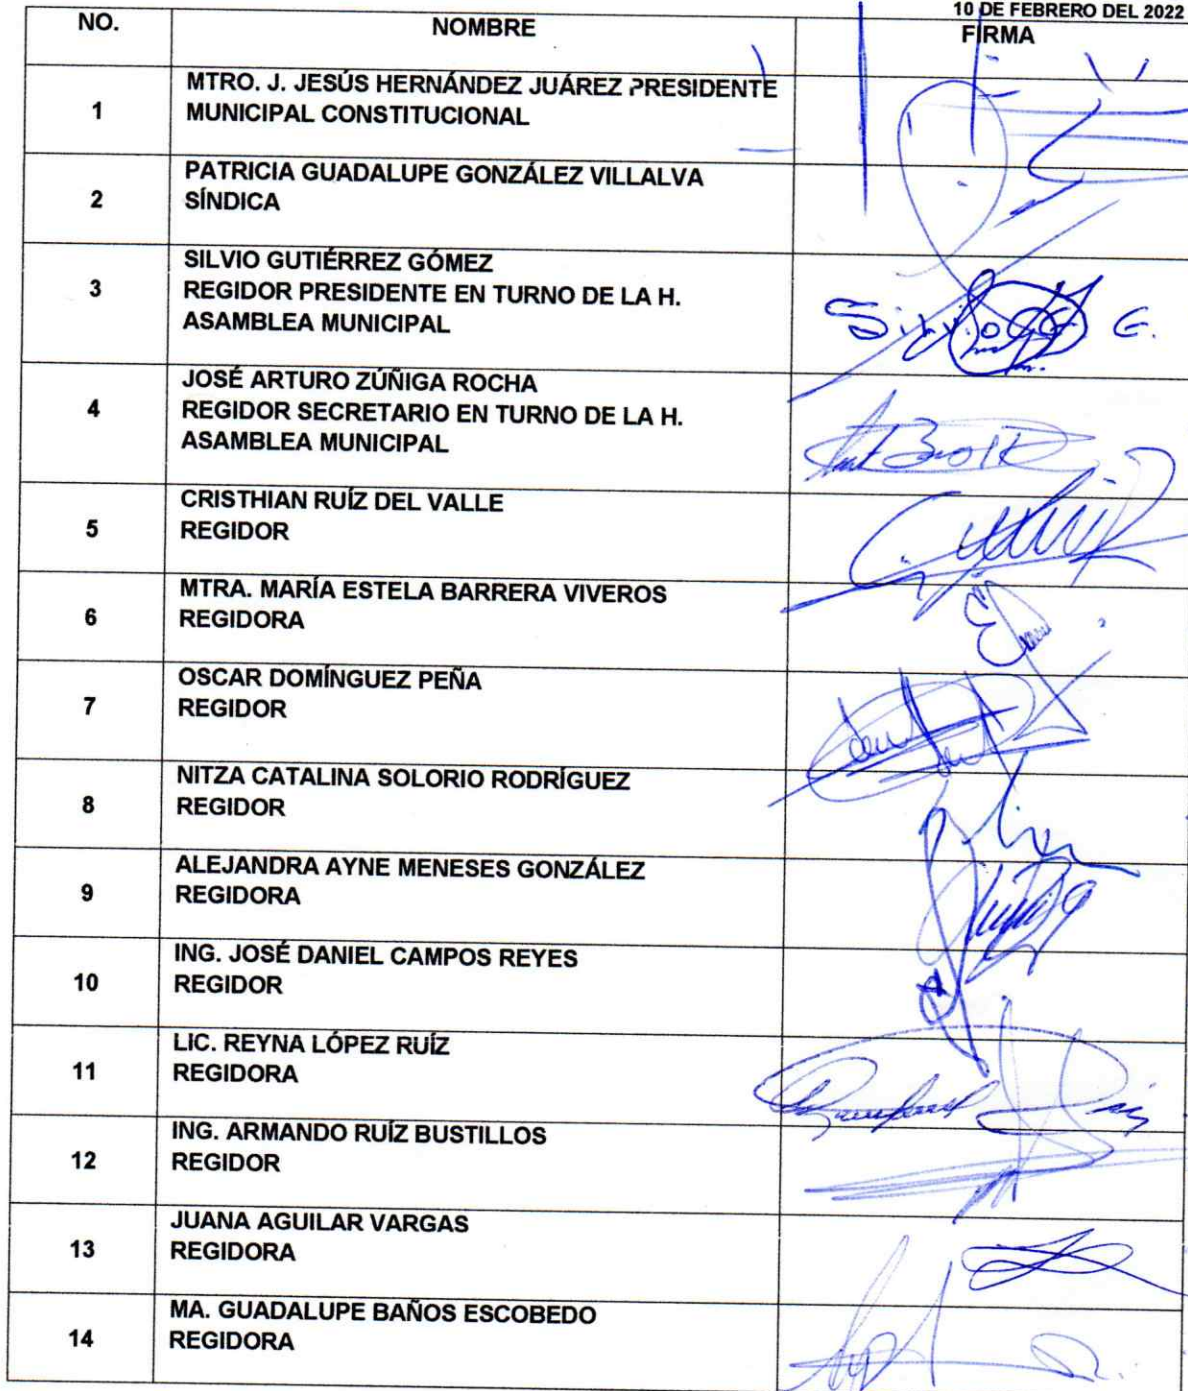 10 DE FEBRERO DEL 2022
NO. NOMBRE FIRMA
1 MTRO. J. JESÚS HERNÁNDEZ JUÁREZ PRESIDENTE
MUNICIPAL CONSTITUCIONAL
2 PATRICIA GUADALUPE GONZÁLEZ VILLALVA
SÍNDICA
3 SILVIO GUTIÉRREZ GÓMEZ
REGIDOR PRESIDENTE EN TURNO DE LA H.
ASAMBLEA MUNICIPAL
Silvio G. G.
4 JOSÉ ARTURO ZÚÑIGA ROCHA
REGIDOR SECRETARIO EN TURNO DE LA H.
ASAMBLEA MUNICIPAL
5 CRISTHIAN RUÍZ DEL VALLE
REGIDOR
6 MTRA. MARÍA ESTELA BARRERA VIVEROS
REGIDORA
7 OSCAR DOMÍNGUEZ PEÑA
REGIDOR
8 NITZA CATALINA SOLORIO RODRÍGUEZ
REGIDOR
9 ALEJANDRA AYNE MENESES GONZÁLEZ
REGIDORA
10 ING. JOSÉ DANIEL CAMPOS REYES
REGIDOR
11 LIC. REYNA LÓPEZ RUÍZ
REGIDORA
12 ING. ARMANDO RUÍZ BUSTILLOS
REGIDOR
13 JUANA AGUILAR VARGAS
REGIDORA
14 MA. GUADALUPE BAÑOS ESCOBEDO
REGIDORA